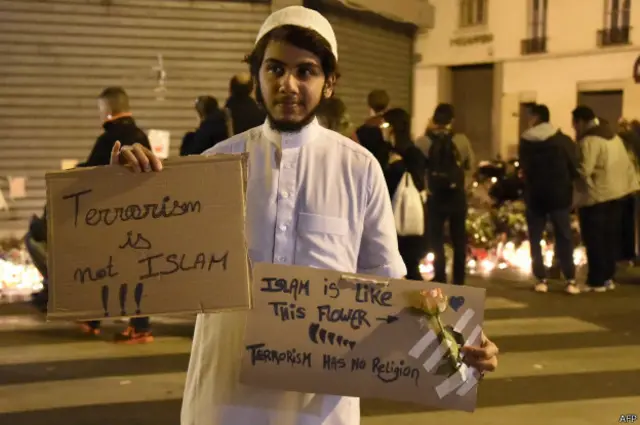 Terrorism
is
not ISLAM
!!!
ISLAM is Like
This FLOWER →
TERRORISM HAS NO Religion
AFP